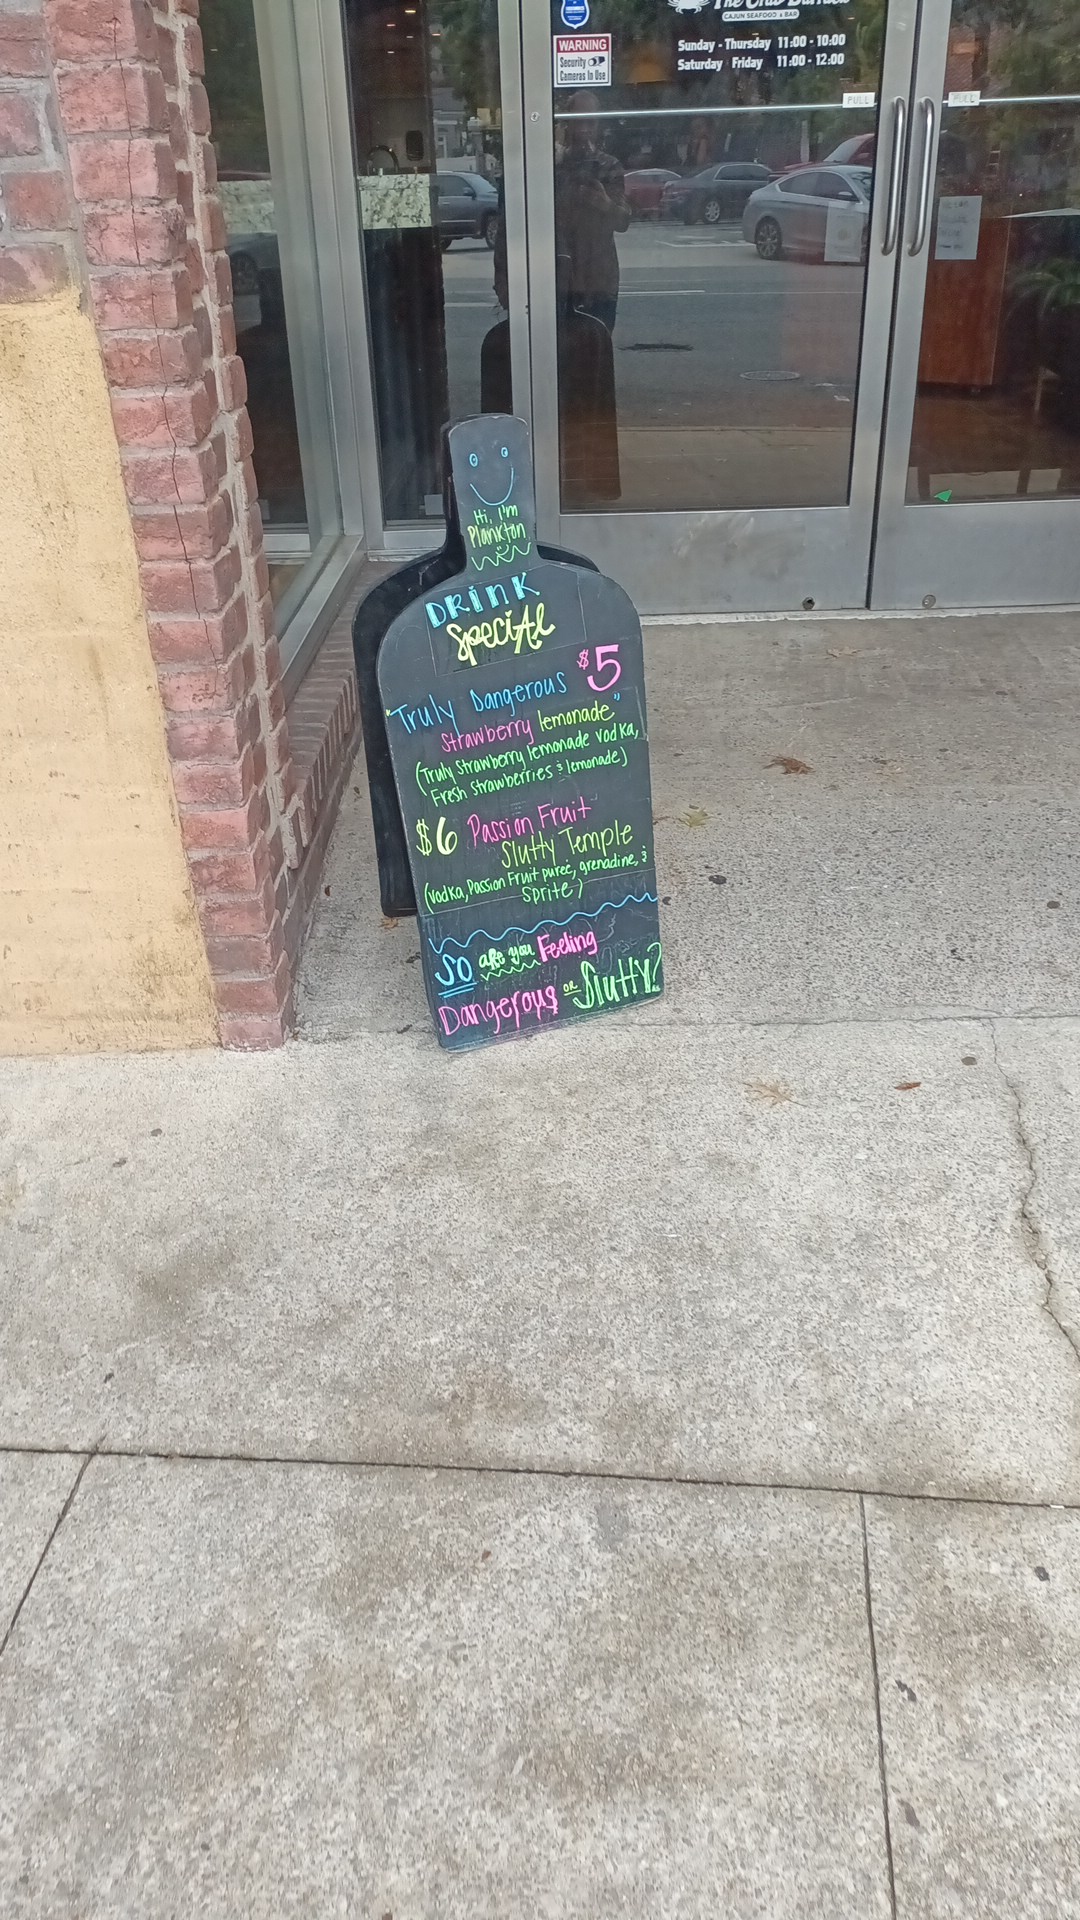 The Crab Barrack
CAJUN SEAFOOD & BAR
WARNING
Security
Cameras In Use
Sunday - Thursday 11:00 - 10:00
Saturday Friday 11:00 - 12:00
PULL
PULL
Hi, I'm
Plankton
DRINK
SPECIAL
$5
"Truly Dangerous
Strawberry lemonade"
(Truly Strawberry lemonade vodka,
Fresh strawberries & lemonade)
$6 Passion Fruit
Slutty Temple
(vodka, Passion Fruit pureé, grenadine, &
Sprite)
SO are you Feeling
Dangerous OR Slutty?